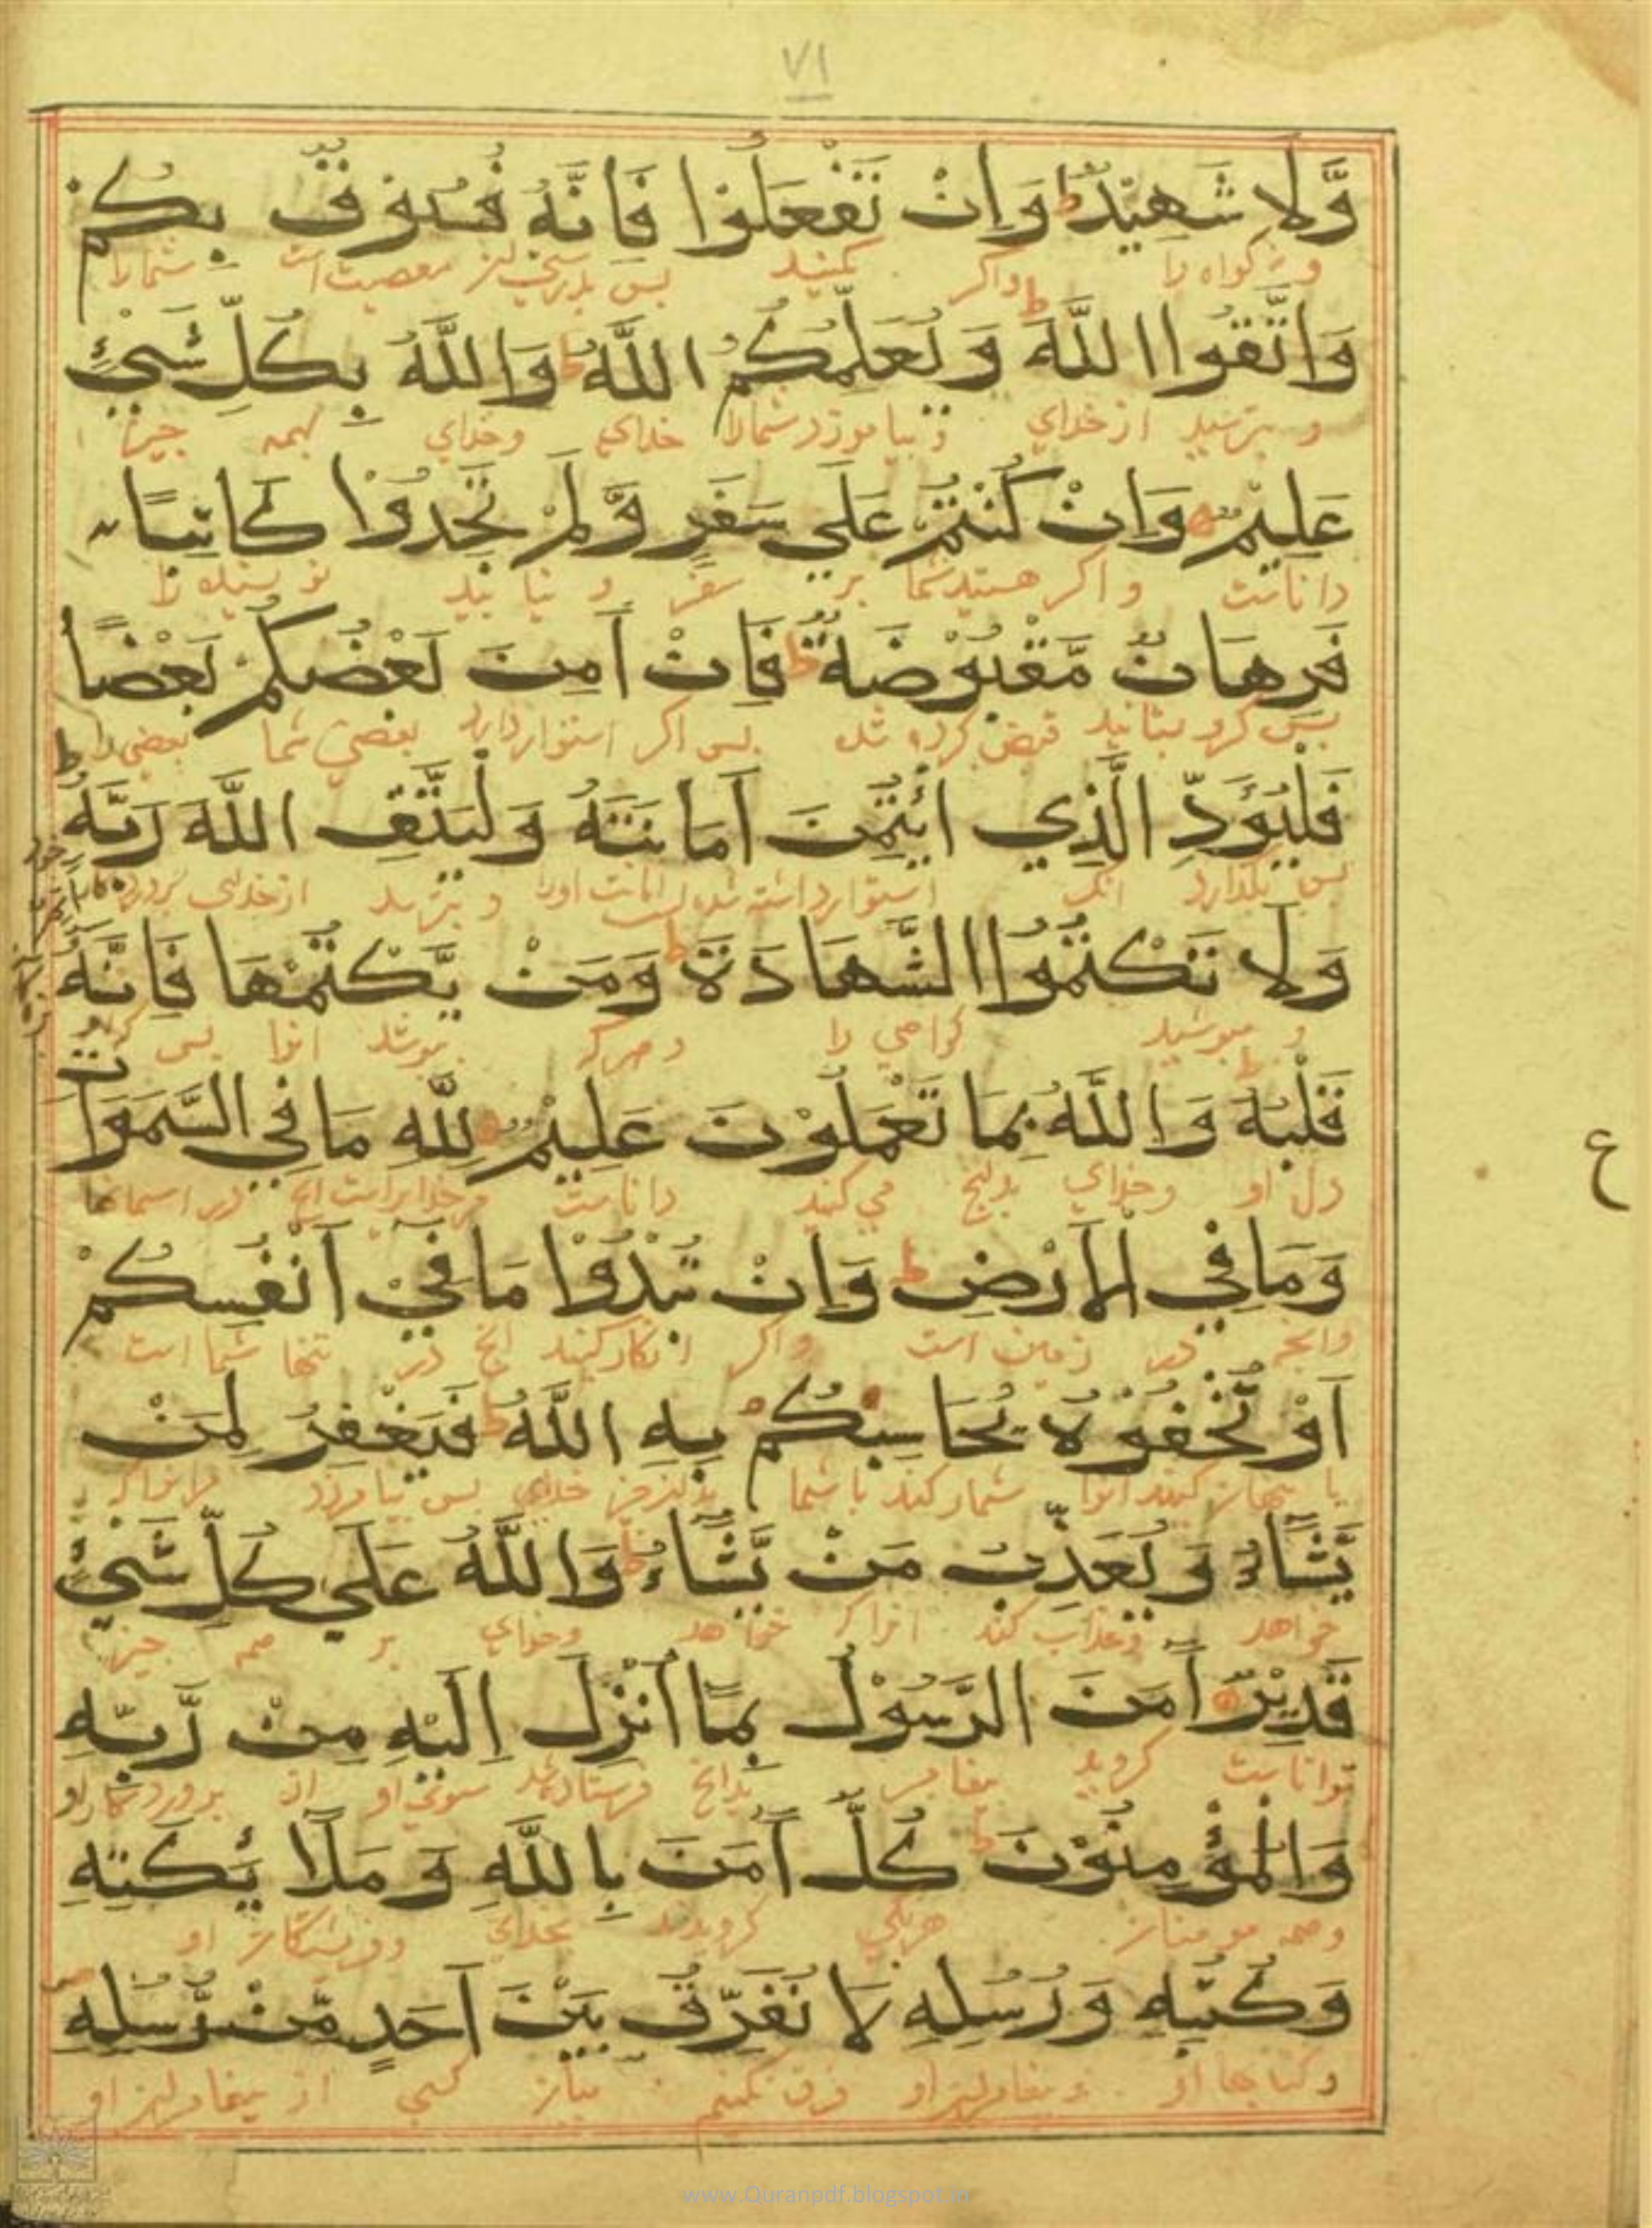 ٧١
وَّلَا شَهِيْدٌ ط وَاِنْ تَفْعَلُوْا فَاِنَّهُ فُسُوْقٌ بِكُمْ
و نه گواه را واگر كنيد پس بدرستي معصيت است شمارا
وَاتَّقُوا اللَّهَ ط وَيُعَلِّمُكُمُ اللَّهُ ط وَاللَّهُ بِكُلِّ شَيْءٍ
و بترسيد از خداي و بياموزد شمارا خداي وخداي بهمه چيز
عَلِيْمٌ وَاِنْ كُنْتُمْ عَلَي سَفَرٍ وَّلَمْ تَجِدُوْا كَاتِبًا
داناست و اگر هستيد شما بر سفر و نيابيد نويسنده را
فَرِهَانٌ مَّقْبُوْضَةٌ ط فَاِنْ اَمِنَ بَعْضُكُمْ بَعْضًا
پس گرو بستانيد قبض كرده شده پس اگر استوار دارد بعضي شما بعضي را
فَلْيُؤَدِّ الَّذِي ائْتُمِنَ اَمَانَتَهُ وَلْيَتَّقِ اللَّهَ رَبَّهُ ط
پس بگذارد انك استوار داشته شده است امانت اورا و بترسد از خداي
وَلَا تَكْتُمُوا الشَّهَادَةَ ط وَمَنْ يَّكْتُمْهَا فَاِنَّهُ اٰثِمٌ
و مپوشيد گواهي را وهركه بپوشد انرا پس
قَلْبُهُ ط وَاللَّهُ بِمَا تَعْمَلُوْنَ عَلِيْمٌ لِلّٰهِ مَا فِي السَّمَوَاتِ
دل او وخداي بدانچ مي كنيد داناست مرخدايراست انچ در اسمانها
وَمَا فِي الْاَرْضِ ط وَاِنْ تُبْدُوْا مَا فِيْ اَنْفُسِكُمْ
وانچه در زمين است واگر اشكار كنيد انچ در تنها شما است
اَوْ تُخْفُوْهُ يُحَاسِبْكُمْ بِهِ اللَّهُ ط فَيَغْفِرُ لِمَنْ
يا پنهان كنيد انرا شمار كند با شما خداي پس بيامرزد مرانراكه
يَّشَاءُ وَيُعَذِّبُ مَنْ يَّشَاءُ ط وَاللَّهُ عَلَي كُلِّ شَيْءٍ
خواهد وعذاب كند انراكه خواهد وخداي بر همه چيز
قَدِيْرٌ اٰمَنَ الرَّسُوْلُ بِمَا اُنْزِلَ اِلَيْهِ مِنْ رَّبِّهِ
تواناست گرويد پيغامبر بدانچ فرستاده شد سوي او از پروردگار او
وَالْمُؤْمِنُوْنَ ط كُلٌّ اٰمَنَ بِاللَّهِ وَمَلَائِكَتِهِ
وهمه مومنان هريكي گرويدند بخداي وفريشتگان او
وَكُتُبِهِ وَرُسُلِهِ لَا نُفَرِّقُ بَيْنَ اَحَدٍ مِّنْ رُّسُلِهِ
وكتابها او وپيغامبران او فرق نكنيم ميان كسي از پيغامبران او
ع
www.Quranpdf.blogspot.in